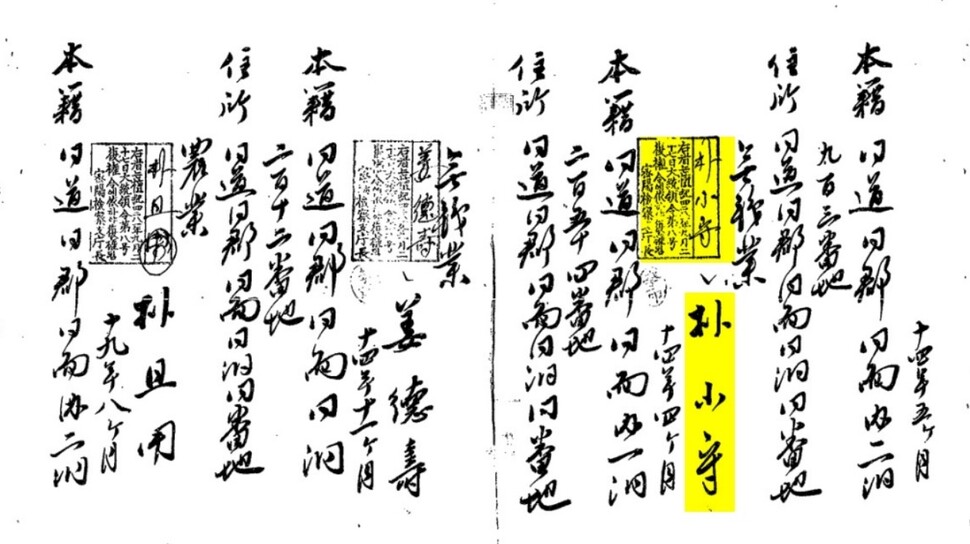 十四年五ヶ月
本籍 同道同郡同面内二洞
九百三番地
住所 同道同郡同面同洞同番地
無職業
朴小守
朴小守
十四年四ヶ月
本籍 同道同郡同面内一洞
二百五十四番地
住所 同道同郡同面同洞同番地
無職業
姜德壽
姜德壽
十四年十一ヶ月
本籍 同道同郡同面同洞
二百十二番地
住所 同道同郡同面同洞同番地
農業
朴且用
朴且用
十九年八ヶ月
本籍 同道同郡同面内二洞